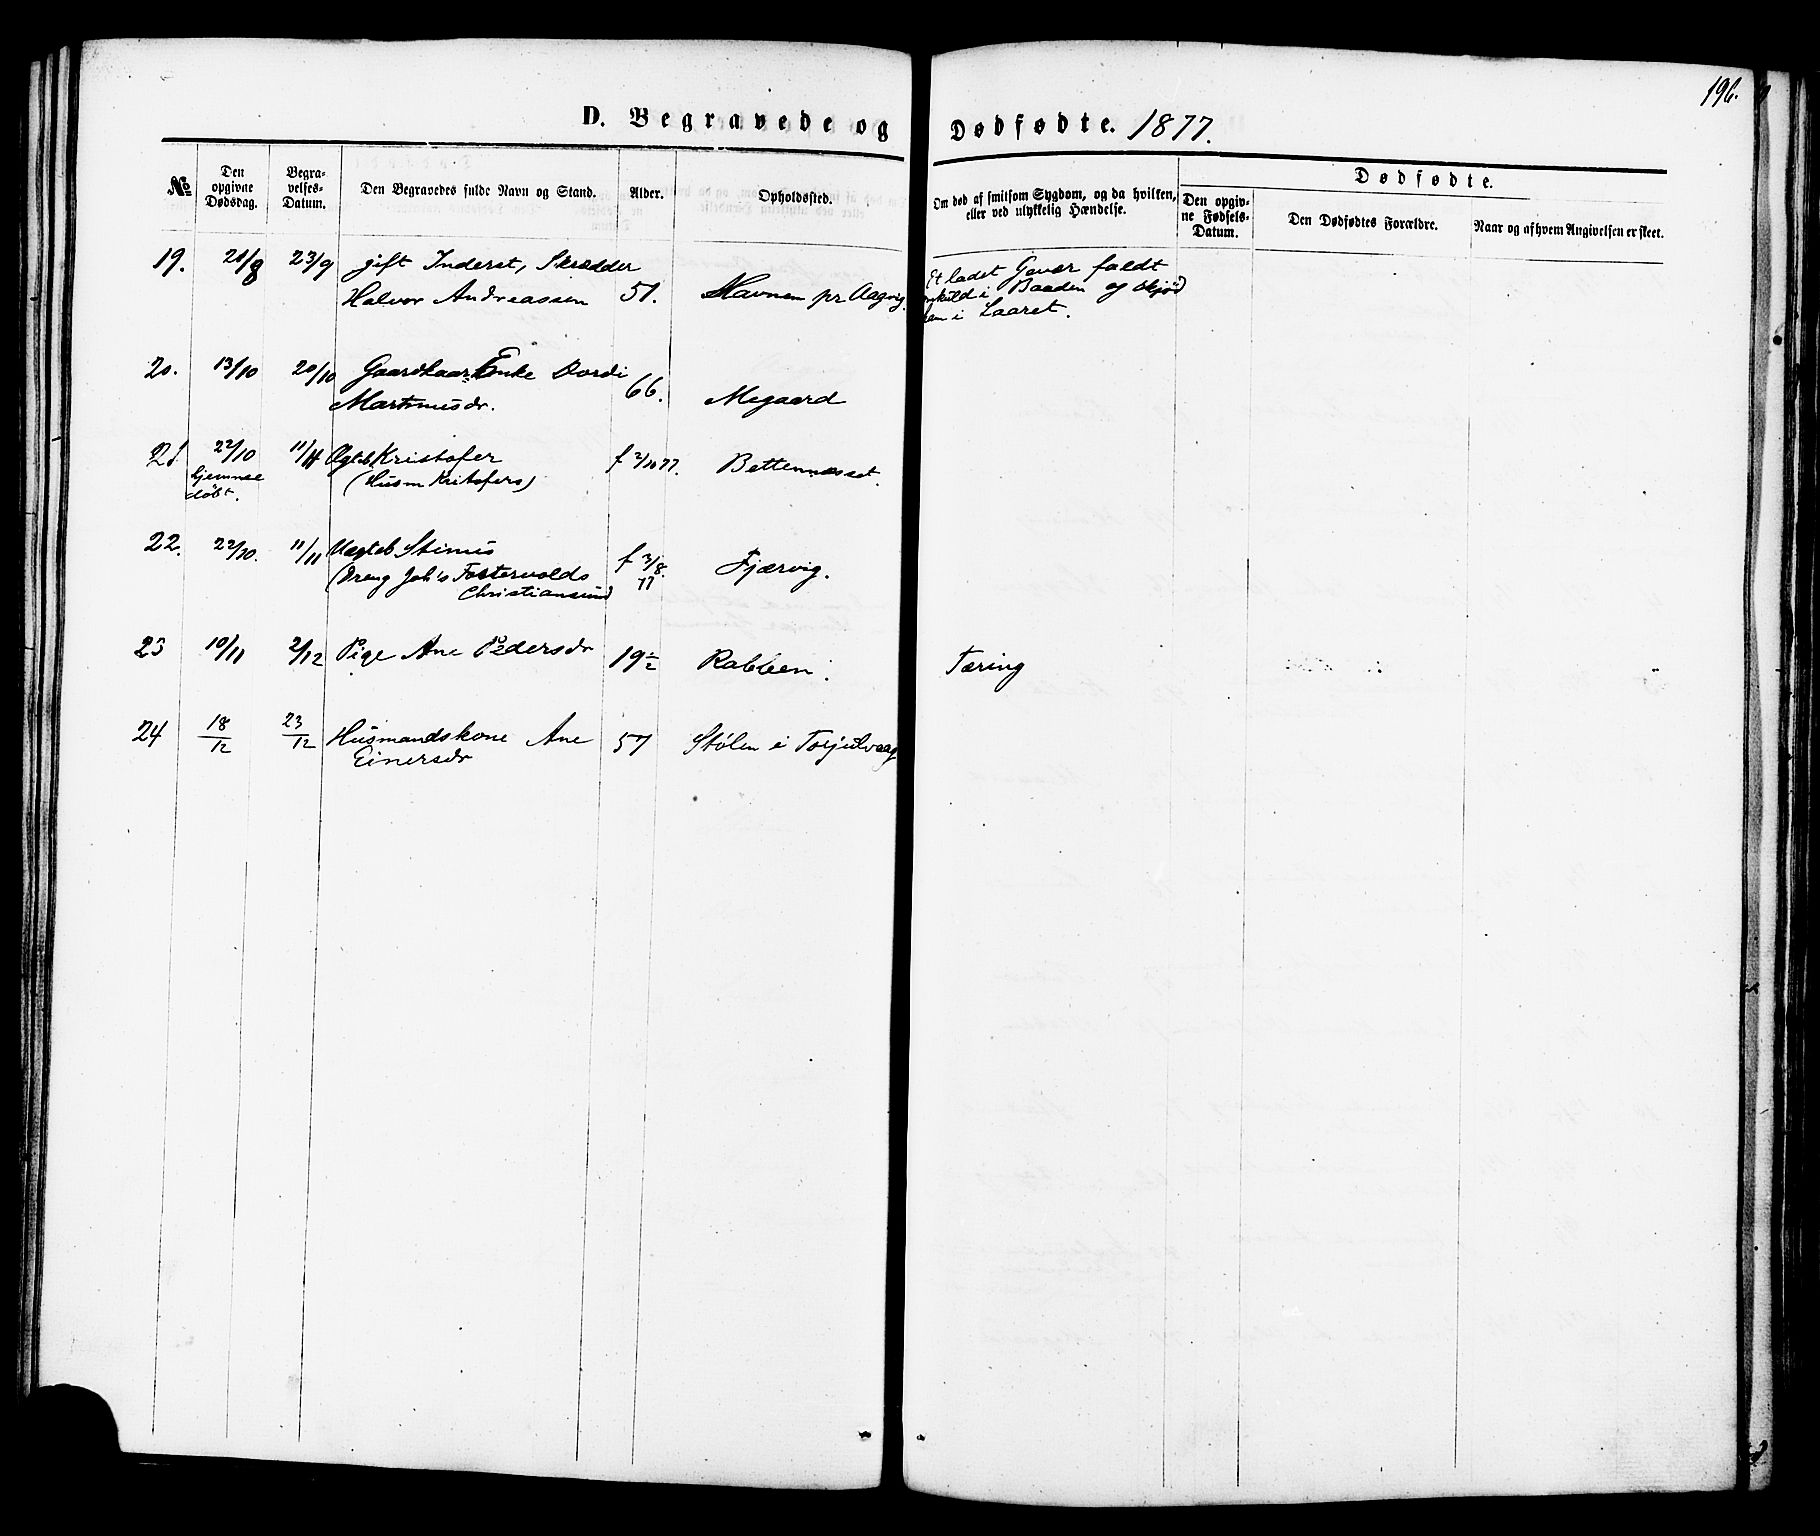 196.
D. Begravede og Dødfødte. 1877.
No
Den opgivne Dødsdag.
Begravelses-Datum.
Den Begravedes fulde Navn og Stand.
Alder.
Opholdssted.
Om død af smitsom Sygdom, og da hvilken, eller ved ulykkelig Hændelse.
Dødfødte.
Den opgivne Fødsels-Datum.
Den Dødfødtes Forældre.
Naar og af hvem Angivelsen er skeet.
19. 21/8 23/9 gift Inderst, Skrædder
Halvor Andreassen 51. Havnen pr Aagvig.
Et ladet Gevær faldt
i Baaden og skjød
i Laaret.
20. 13/10 20/10 Gaardkaar Enke Dordi
Martinusdr. 66. Megaard
21 22/10 11/11 Ægteb Kristofer f 2/10 77. Bettennesset.
hjemme (Husm Kristofers)
døbt.
22. 22/10. 11/11 Uægteb Stinus f 3/8. 77 Fjærvig.
(Dreng Joh's Fostervolds
Christiansund
23 10/11 2/12 Pige Ane Pedersdr 19 1/2 Rabben. Tæring
24 18/12 23/12 Husmandskone Ane 57 Stølen i Torjulvaag
Einersdr